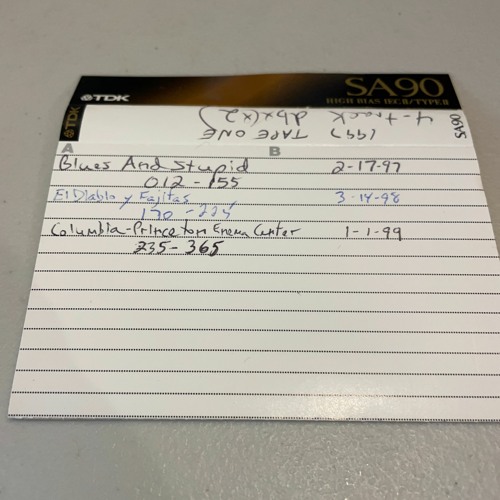 TDK
SA90
HIGH BIAS IECII/TYPE II
4-track dbx(x2)
1997 TAPE ONE
SA90
A B
Blues And Stupid 2-17-97
012-155
El Diablo y Fajitas 3-14-98
170-225
Columbia-Princeton Enema Center 1-1-99
235-365